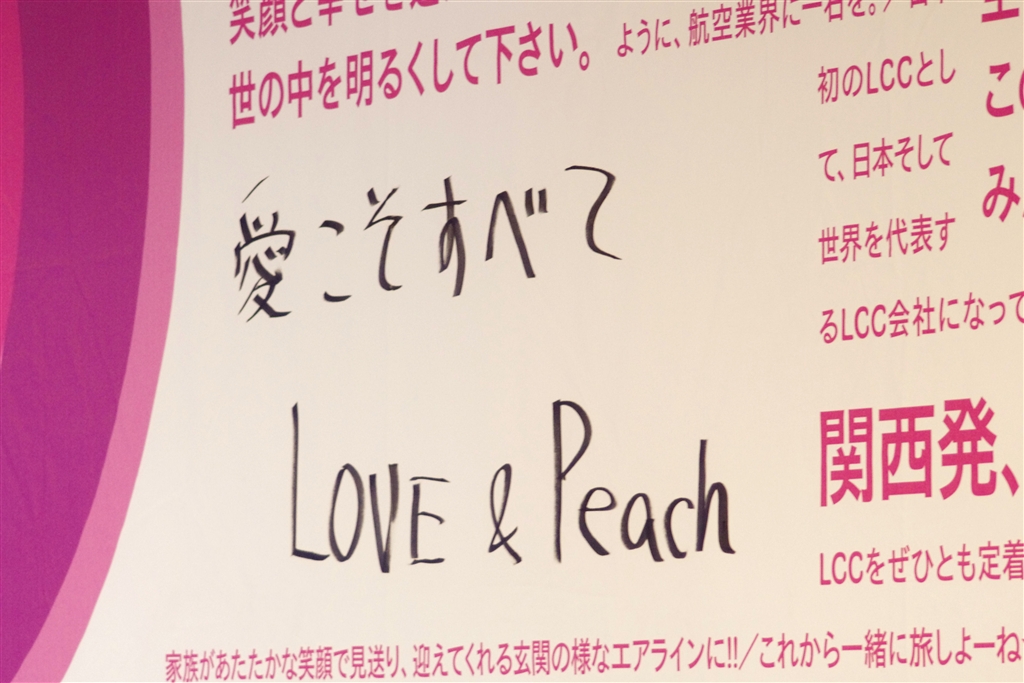 笑顔と幸せを
世の中を明るくして下さい。
ように、航空業界に一石を。/日本
初のLCCとし
て、日本そして
世界を代表す
るLCC会社になって
こ
み
愛こそすべて
LOVE & Peach
関西発、
LCCをぜひとも定着
家族があたたかな笑顔で見送り、迎えてくれる玄関の様なエアラインに!!/これから一緒に旅しよーね